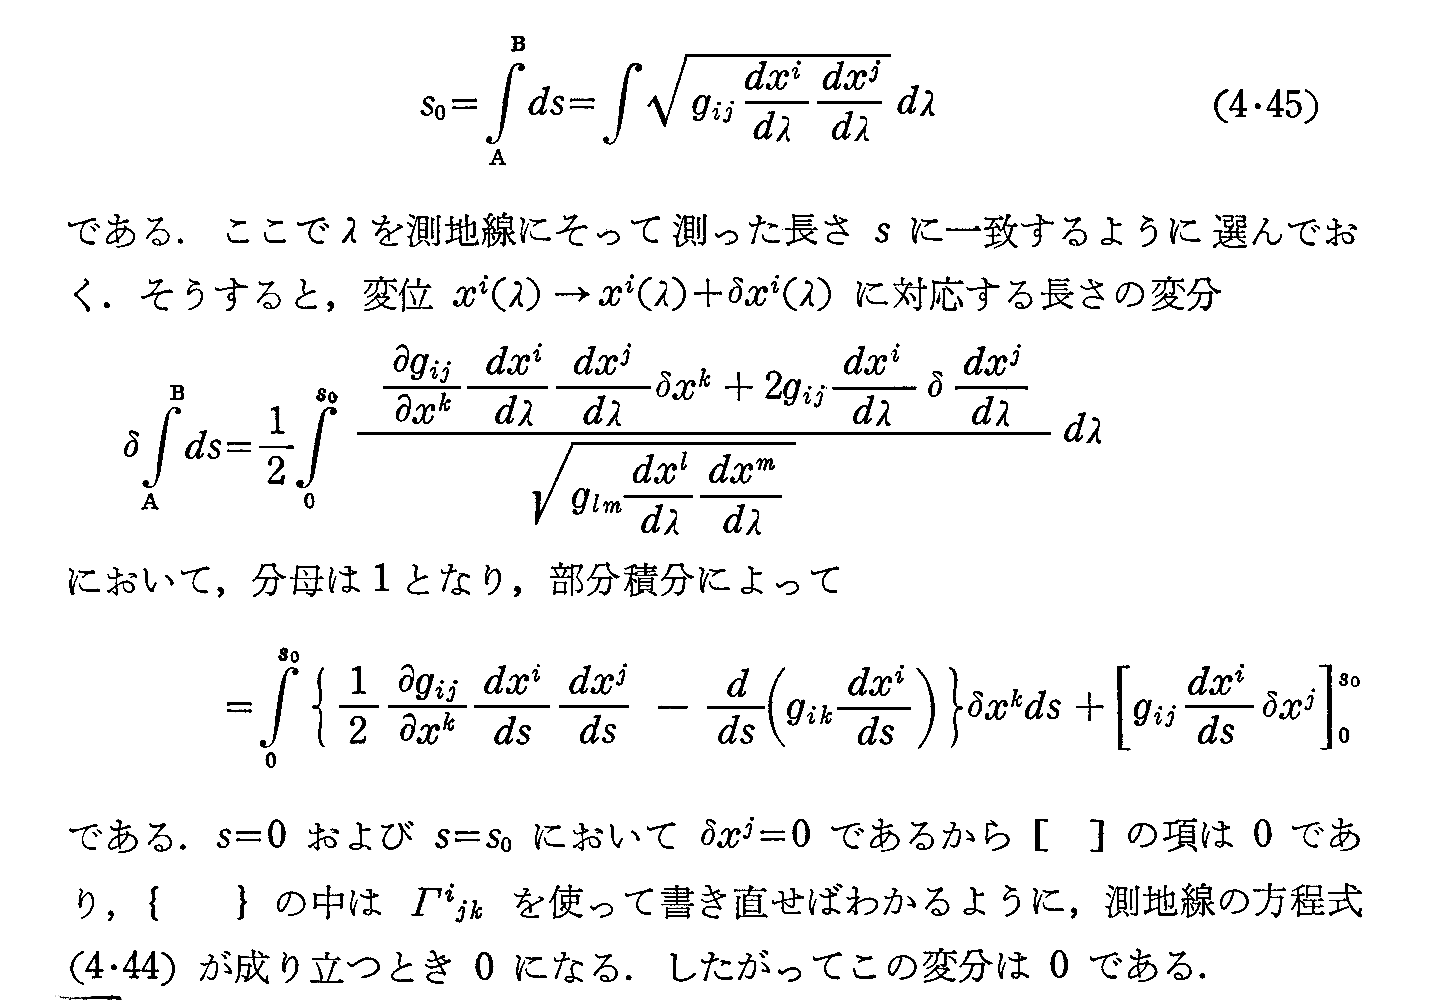 s₀=∫_A^B ds=∫√(g_{ij} dx^i/dλ dx^j/dλ) dλ (4·45)
である．ここでλを測地線にそって測った長さ s に一致するように選んでお
く．そうすると，変位 x^i(λ)→x^i(λ)+δx^i(λ) に対応する長さの変分
δ∫_A^B ds=1/2 ∫_0^{s₀} (∂g_{ij}/∂x^k dx^i/dλ dx^j/dλ δx^k + 2g_{ij} dx^i/dλ δ dx^j/dλ)/√(g_{lm} dx^l/dλ dx^m/dλ) dλ
において，分母は1となり，部分積分によって
=∫_0^{s₀} {1/2 ∂g_{ij}/∂x^k dx^i/ds dx^j/ds − d/ds(g_{ik} dx^i/ds)}δx^k ds + [g_{ij} dx^i/ds δx^j]_0^{s₀}
である．s=0 および s=s₀ において δx^j=0 であるから [ ] の項は 0 であ
り，{ } の中は Γ^i_{jk} を使って書き直せばわかるように，測地線の方程式
(4·44) が成り立つとき 0 になる．したがってこの変分は 0 である．